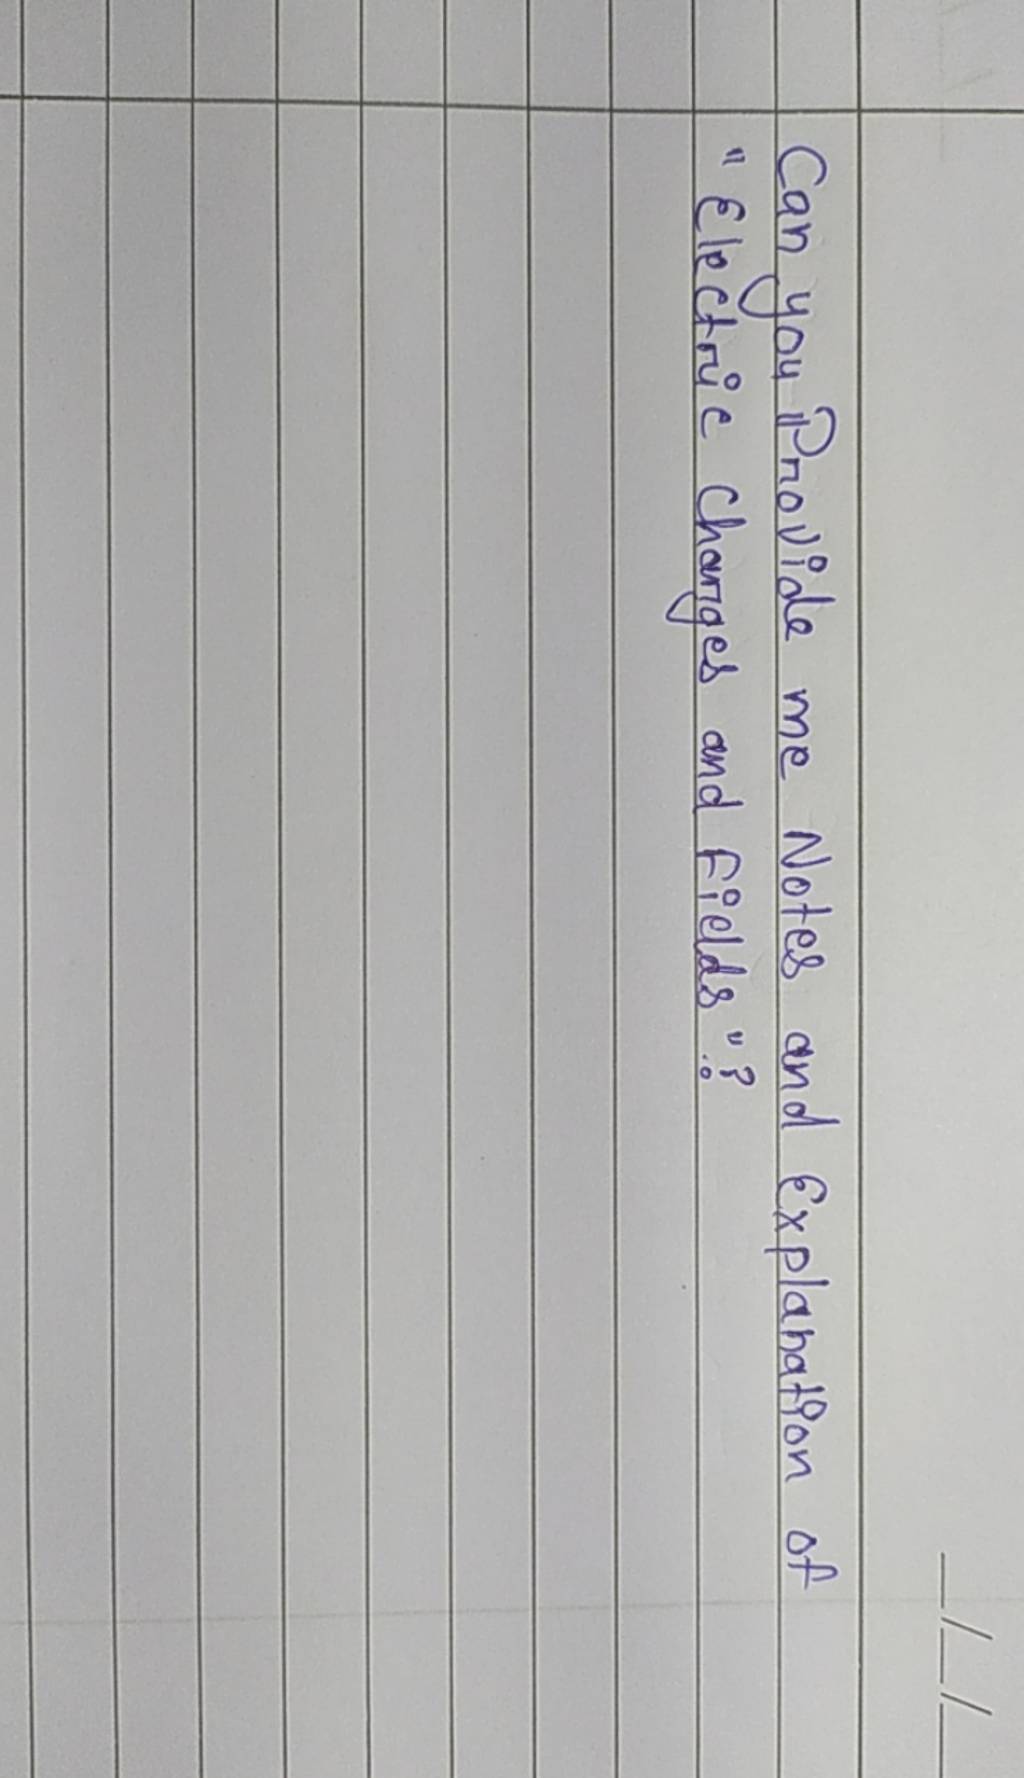 Can you Provide me Notes and Explanation of
"Electric Charges and Fields"?